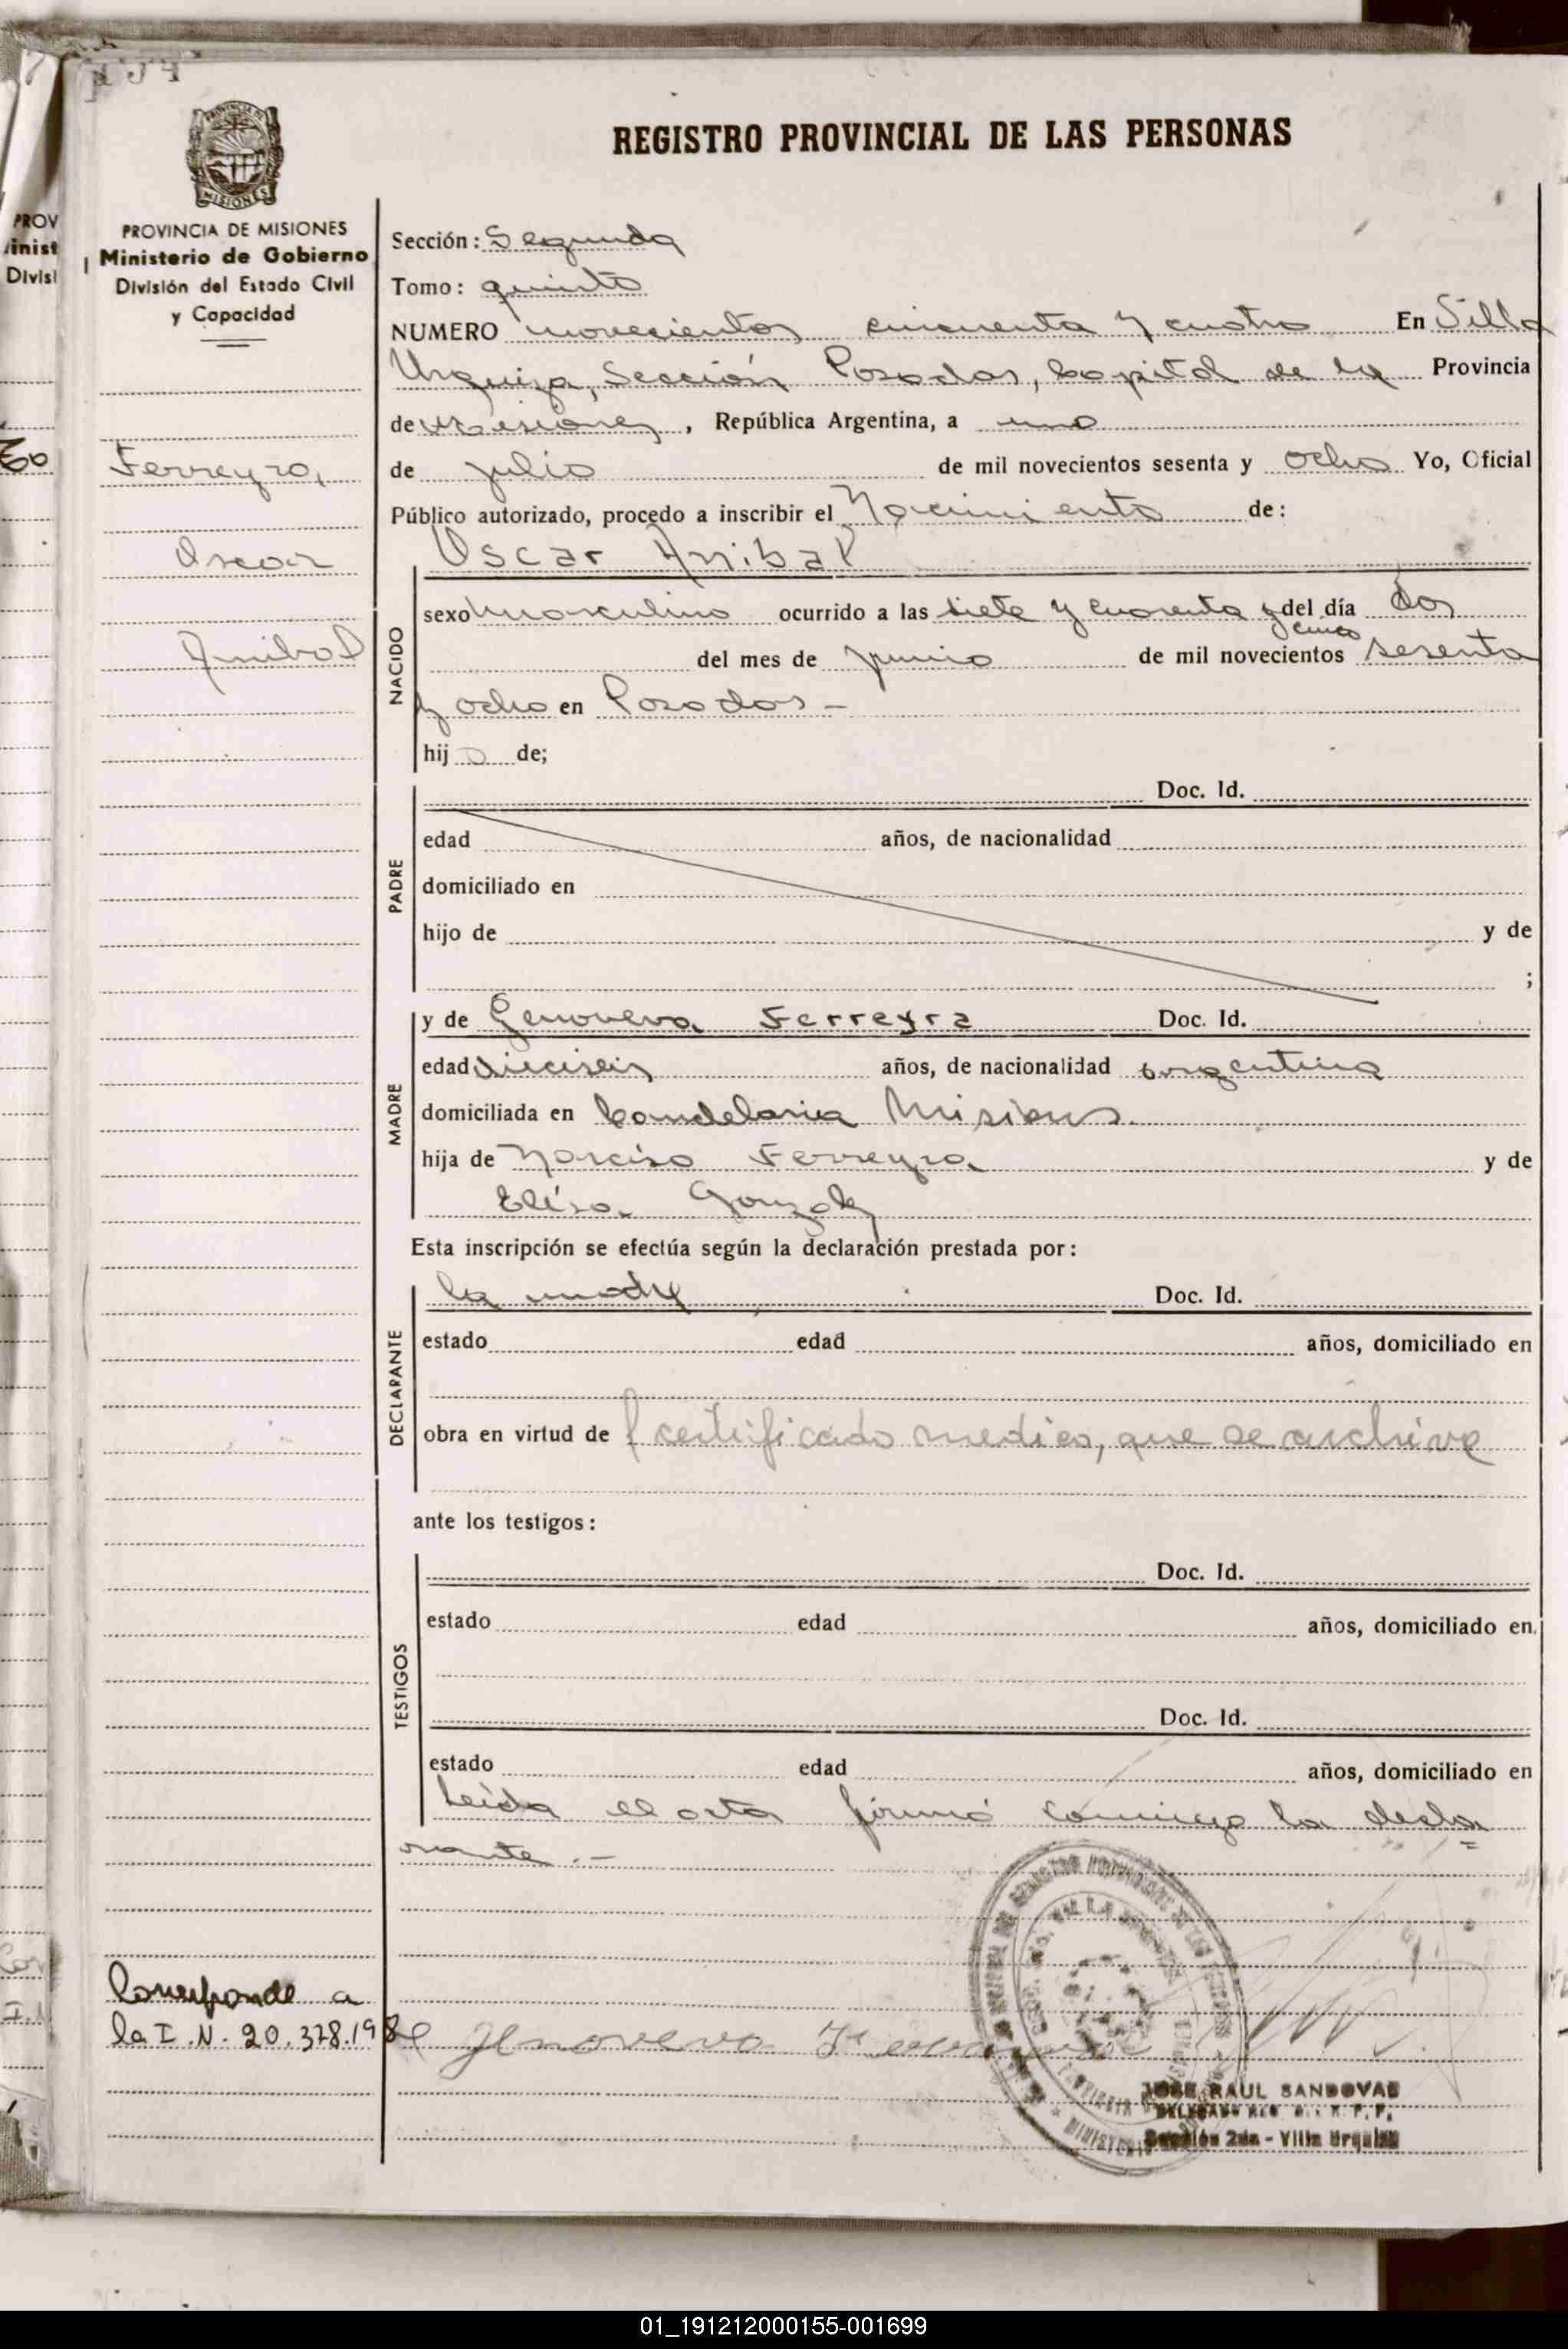 954
REGISTRO PROVINCIAL DE LAS PERSONAS
PROVINCIA DE MISIONES
MISIONES
PROVINCIA DE MISIONES
Ministerio de Gobierno
División del Estado Civil
y Capacidad
PROV
inist
Divisi
Ferreyra,
Oscar
Anibal
Sección: Segunda
Tomo: quinto
NUMERO novecientos cincuenta y cuatro En Villa
Urquiza, Sección Posadas, Capital de la Provincia
de Misiones, República Argentina, a uno
de julio de mil novecientos sesenta y ocho Yo, Oficial
Público autorizado, procedo a inscribir el Nacimiento de:
Oscar Anibal
NACIDO
sexo masculino ocurrido a las siete y cuarenta y del día dos
cinco
del mes de junio de mil novecientos sesenta
y ocho en Posadas –
hijo de;
PADRE
Doc. Id.
edad años, de nacionalidad
domiciliado en
hijo de y de
;
MADRE
y de Genoveva Ferreyra Doc. Id.
edad dieciseis años, de nacionalidad argentina
domiciliada en Candelaria Misiones.
hija de Narciso Ferreyra y de
Elisa Gonzalez
Esta inscripción se efectúa según la declaración prestada por:
DECLARANTE
la madre Doc. Id.
estado edad años, domiciliado en
obra en virtud de certificado medico, que se archiva
ante los testigos:
TESTIGOS
Doc. Id.
estado edad años, domiciliado en
Doc. Id.
estado edad años, domiciliado en
Leida el acta firmó conmigo la decla=
rante .–
Corresponde a
la I.N. 20.378.198
Genoveva
JOSE RAUL SANDOVAL
Sección 2da - Villa Urquiza
01_191212000155-001699